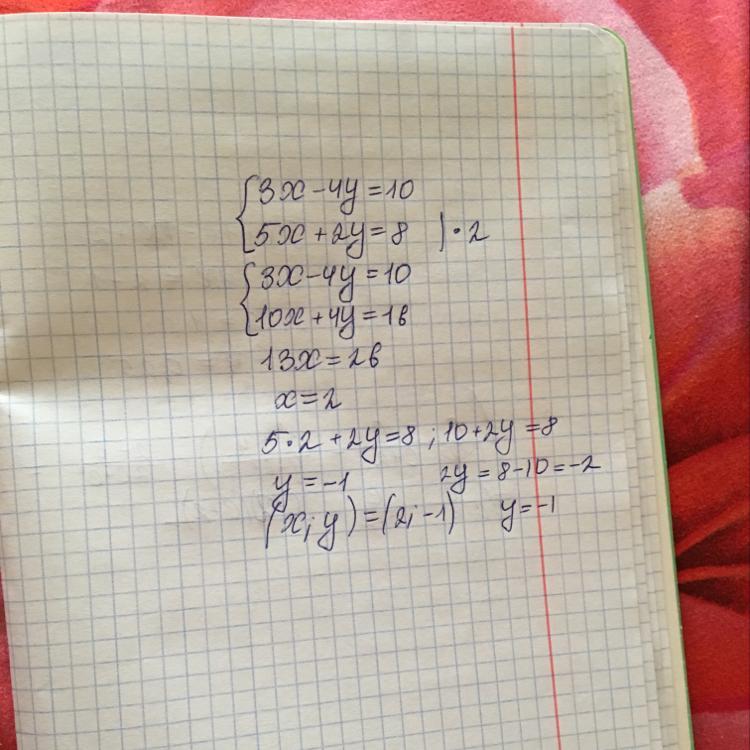 {3x-4y=10
5x+2y=8 |·2
{3x-4y=10
10x+4y=16
13x=26
x=2
5·2+2y=8; 10+2y=8
y=-1 2y=8-10=-2
(x;y)=(2;-1) y=-1